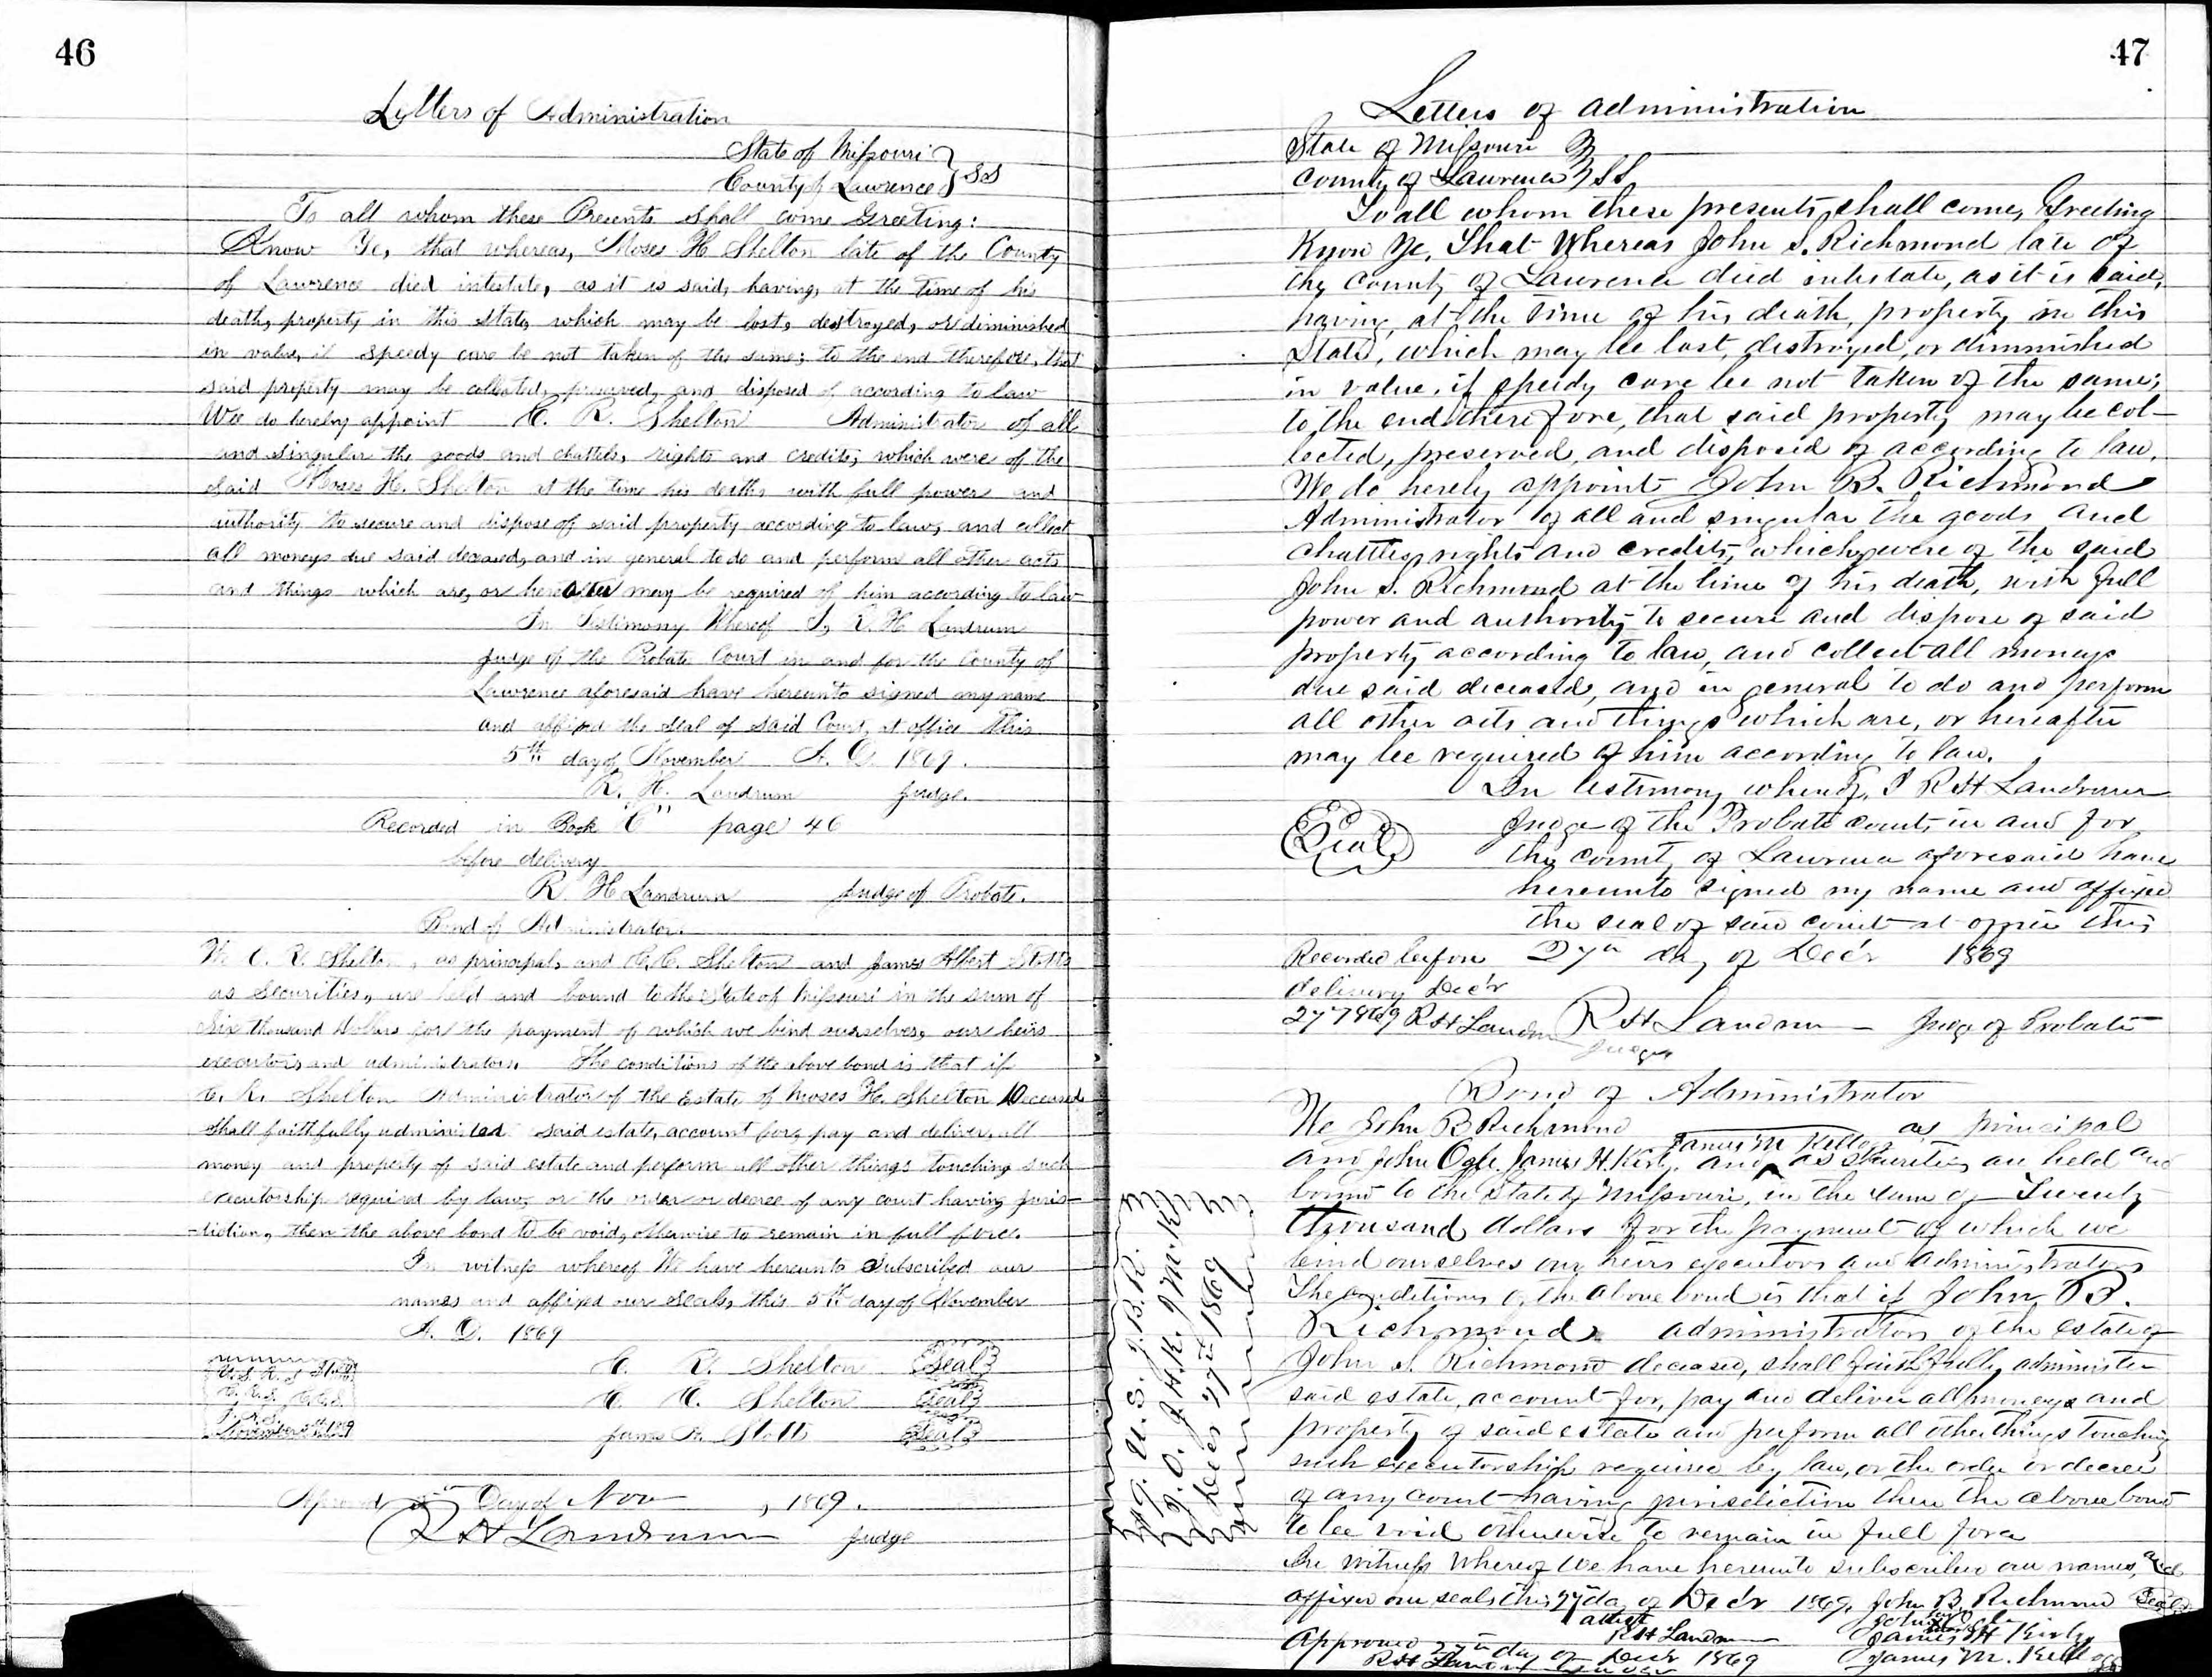 46
Letters of Administration
State of Missouri
County of Lawrence } SS
To all whom these Presents shall come Greeting:
Know Ye, that whereas, Moses H Shelton late of the County
of Lawrence died intestate, as it is said, having, at the time of his
death, property in this State, which may be lost, destroyed, or diminished
in value, if speedy care be not taken of the same; to the end therefore, that
said property may be collected, preserved, and disposed of according to law
We do hereby appoint C. R. Shelton Administrator of all
and singular the goods and chattels, rights and credits, which were of the
said Moses H. Shelton at the time his death, with full power and
authority to secure and dispose of said property according to law, and collect
all moneys due said deceased, and in general to do and perform all other acts
and things which are, or hereafter may be required of him according to law
In Testimony Whereof I, R. H. Landrum
Judge of the Probate Court in and for the County of
Lawrence aforesaid have hereunto signed my name
and affixed the seal of said Court, at office this
5th day of November A. D. 1869.
R. H. Landrum Judge.
Recorded in Book "C" page 46
before delivery
R H Landrum Judge of Probate.
Bond of Administrator
We C. R. Shelton, as principal, and C. C. Shelton and James Albert Stotts
as Securities, are held and bound to the State of Missouri in the sum of
Six thousand Dollars for the payment of which we bind ourselves, our heirs
executors and administrators. The conditions of the above bond is that if
C. R. Shelton Administrator of the Estate of Moses H. Shelton Deceased
shall faithfully administer said estate, account for, pay and deliver, all
money and property of said estate and perform all other things touching such
executorship required by law, or the order or decree of any court having juris-
-diction, then the above bond to be void, otherwise to remain in full force.
In witness whereof We have hereunto Subscribed our
names and affixed our Seals, this 5th day of November
A. D. 1869
C. R. Shelton Seal
C. C. Shelton Seal
James A. Stotts Seal
November 5th 1869
Approved 5th Day of Nov, 1869.
R H Landrum Judge
47
Letters of administration
State of Missouri
County of Lawrence } SS
To all whom these presents shall come, Greeting
Know Ye, That Whereas John S. Richmond late of
the County of Lawrence died intestate, as it is said,
having, at the time of his death, property in this
State, which may be lost, destroyed, or dimminished
in value, if speedy care be not taken of the same;
to the end therefore, that said property may be col-
lected, preserved, and disposed of according to law,
We do hereby appoint John B. Richmond
Administrator of all and singular the goods and
chattles, rights and credits, which were of the said
John S. Richmond at the time of his death, with full
power and authority to secure and dispose of said
property according to law, and collect all moneys
due said deceased, and in general to do and perform
all other acts and things which are, or hereafter
may be required of him according to law.
In testimony whereof, I R H Landrum
Seal
Judge of the Probate court, in and for
the county of Lawrence aforesaid have
hereunto signed my name and affixed
the seal of said court at office this
27th day of Dec'r 1869
Recorded before
delivery Dec'r
27 1869 R H Landrum
Judge
R H Landrum Judge of Probate
Bond of Administrator
We John B Richmond as principal
and John Ogle. James H. Kirby. and James M Kellogg as Securities are held and
bound to the State of Missouri, in the sum of Twenty
thousand dollars for the payment of which we
bind ourselves our heirs executors and administrators
The conditions of the above bond is that if John B.
Richmond administrator of the estate of
John S. Richmond deceased, shall faithfully administer
said estate, account for, pay and deliver all moneys and
property of said estate and perform all other things touching
such executorship required by law, or the order or decree
of any court having jurisdiction then the above bond
to be void otherwise to remain in full force
In witness Whereof We have hereunto subscribed our names, and
affixed our seals this 27 day of Dec'r 1869. John B. Richmond Seal
attest
R H Landrum
James H Kirby
James M. Kellogg
Approved 27th day of Dec'r 1869
U.S. J.B.R.
J.O. J.H.K. J.M.K.
Dec'r 27th 1869